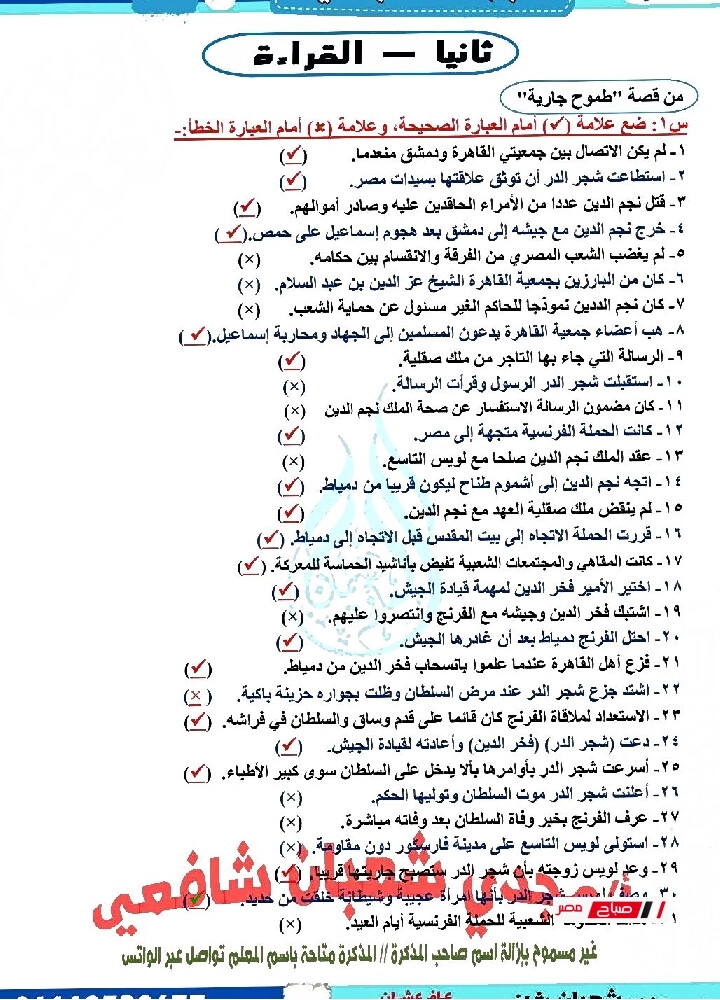 ثانيا – القراءة
من قصة "طموح جارية"
س١: ضع علامة (✓) أمام العبارة الصحيحة، وعلامة (×) أمام العبارة الخطأ:-
١- لم يكن الاتصال بين جمعيتي القاهرة ودمشق منعدما. (✓)
٢- استطاعت شجر الدر أن توثق علاقتها بسيدات مصر. (✓)
٣- قتل نجم الدين عددا من الأمراء الحاقدين عليه وصادر أموالهم. (✓)
٤- خرج نجم الدين مع جيشه إلى دمشق بعد هجوم إسماعيل على حمص.(✓)
٥- لم يغضب الشعب المصري من الفرقة والانقسام بين حكامه. (×)
٦- كان من البارزين بجمعية القاهرة الشيخ عز الدين بن عبد السلام. (×)
٧- كان نجم الددين نموذجا للحاكم الغير مسئول عن حماية الشعب. (×)
٨- هب أعضاء جمعية القاهرة يدعون المسلمين إلى الجهاد ومحاربة إسماعيل.(✓)
٩- الرسالة التي جاء بها التاجر من ملك صقلية. (✓)
١٠- استقبلت شجر الدر الرسول وقرأت الرسالة. (×)
١١- كان مضمون الرسالة الاستفسار عن صحة الملك نجم الدين (×)
١٢- كانت الحملة الفرنسية متجهة إلى مصر. (✓)
١٣- عقد الملك نجم الدين صلحا مع لويس التاسع. (×)
١٤- اتجه نجم الدين إلى أشموم طناح ليكون قريبا من دمياط. (✓)
١٥- لم ينقض ملك صقلية العهد مع نجم الدين. (✓)
١٦- قررت الحملة الاتجاه إلى بيت المقدس قبل الاتجاه إلى دمياط. (✓)
١٧- كانت المقاهي والمجتمعات الشعبية تفيض بأناشيد الحماسة للمعركة. (✓)
١٨- اختير الأمير فخر الدين لمهمة قيادة الجيش. (✓)
١٩- اشتبك فخر الدين وجيشه مع الفرنج وانتصروا عليهم. (×)
٢٠- احتل الفرنج دمياط بعد أن غادرها الجيش. (✓)
٢١- فزع أهل القاهرة عندما علموا بانسحاب فخر الدين من دمياط. (✓)
٢٢- اشتد جزع شجر الدر عند مرض السلطان وظلت بجواره حزينة باكية. (×)
٢٣- الاستعداد لملاقاة الفرنج كان قائما على قدم وساق والسلطان في فراشه. (✓)
٢٤- دعت (شجر الدر) (فخر الدين) وأعادته لقيادة الجيش. (✓)
٢٥- أسرعت شجر الدر بأوامرها بألا يدخل على السلطان سوى كبير الأطباء. (✓)
٢٦- أعلنت شجر الدر موت السلطان وتوليها الحكم. (×)
٢٧- عرف الفرنج بخبر وفاة السلطان بعد وفاته مباشرة. (×)
٢٨- استولى لويس التاسع على مدينة فارسكور دون مقاومة. (×)
٢٩- وعد لويس زوجته بأن شجر الدر ستصبح جاريتها قريبا. (✓)
٣٠- شجر الدر بأنها امرأة عجيبة وشيطانة خلقت من حديد. (✓)
الشعبية للحملة الفرنسية أيام العيد. (×)
شعبان شافعي
صباح مصر
غير مسموح بإزالة اسم صاحب المذكرة // المذكرة متاحة باسم المعلم تواصل عبر الواتس